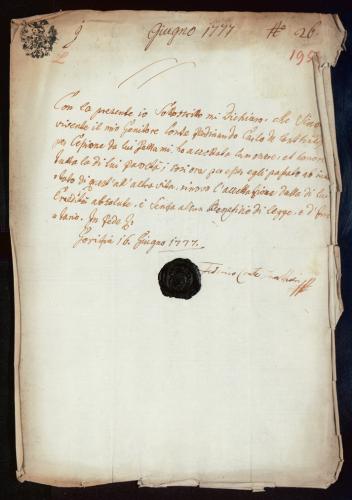 9 Giugno 1777 No 26
195
Con la presente io Sottoscritto mi Dichiaro, che Sino
vivente il mio Genitore Conte Ferdinando Carlo de
per Cessione da lui fatta mi, ho accettato l'onore, et onori
tutta la di lui facoltà; così ora per esser egli passato ad
da quest'all'altra vita, rinovo l'accettazione della di lui
Eredità absolute, e senza alcun Beneficio di legge, e d'Inven
tario. In fede
Gorizia 16 Giugno 1777.
Conte